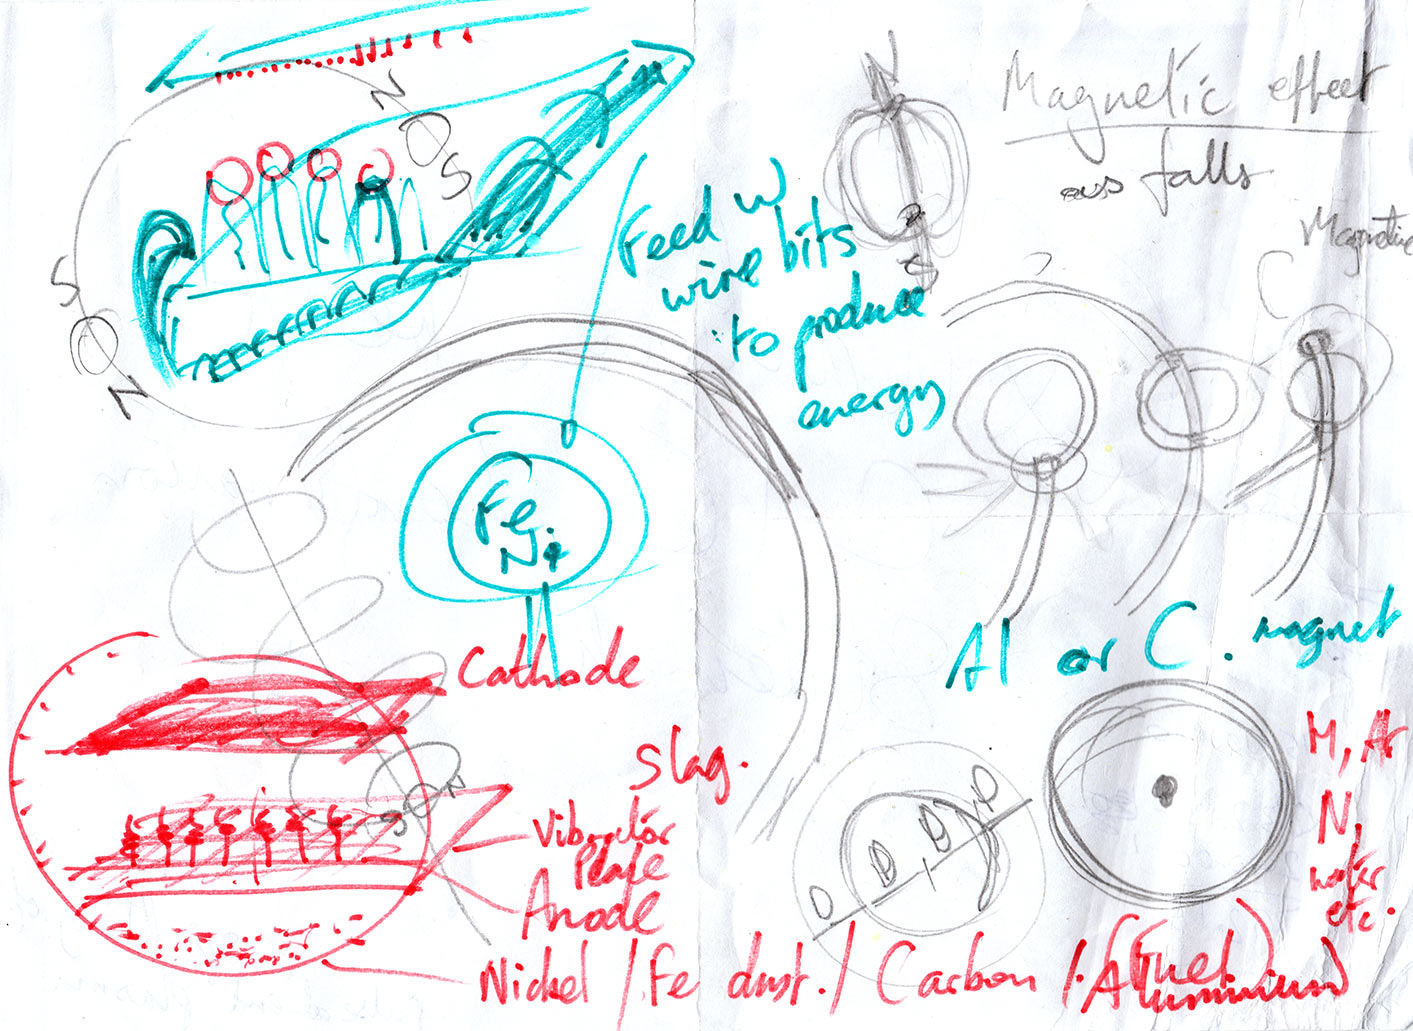 N
S
S
N
N
S
Magnetic effect
falls
Feed W
wire bits
to produce
energy
Fe.
Ni
Al or C. magnet
Cathode
Slag.
Vibrator
Plate
Anode
N
S
D
D
D
D
N,
water
etc.
Nickel / Fe dust. / Carbon / (Fuel)
Aluminium)